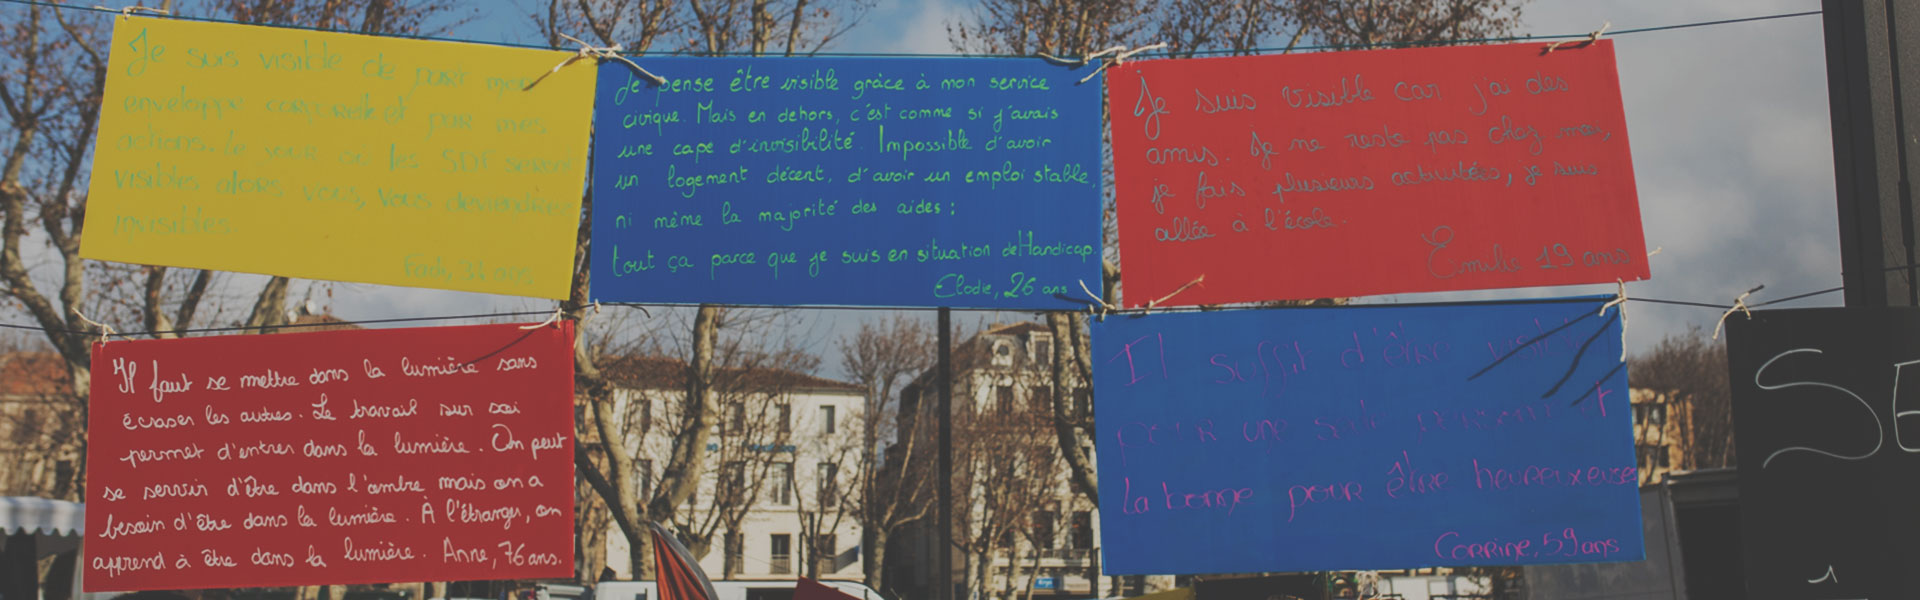 Je suis visible de part mon
enveloppe corporelle et par mes
actions. Le jour où les SDF seront
visibles alors vous, vous deviendrez
invisibles.
Fadi, 31 ans
Je pense être visible grâce à mon service
civique. Mais en dehors, c'est comme si j'avais
une cape d'invisibilité. Impossible d'avoir
un logement décent, d'avoir un emploi stable,
ni même la majorité des aides :
tout ça parce que je suis en situation de Handicap.
Elodie, 26 ans
Je suis visible car j'ai des
amis. Je ne reste pas chez moi,
je fais plusieurs activitées, je suis
allée à l'école.
Emilie 19 ans
Il faut se mettre dans la lumière sans
écraser les autres. Le travail sur soi
permet d'entrer dans la lumière. On peut
se servir d'être dans l'ombre mais on a
besoin d'être dans la lumière. À l'étranger, on
apprend à être dans la lumière. Anne, 76 ans.
Il suffit d'être visible
pour une seule personne et
la bonne pour être heureux.euse
Corrine, 59 ans
SE